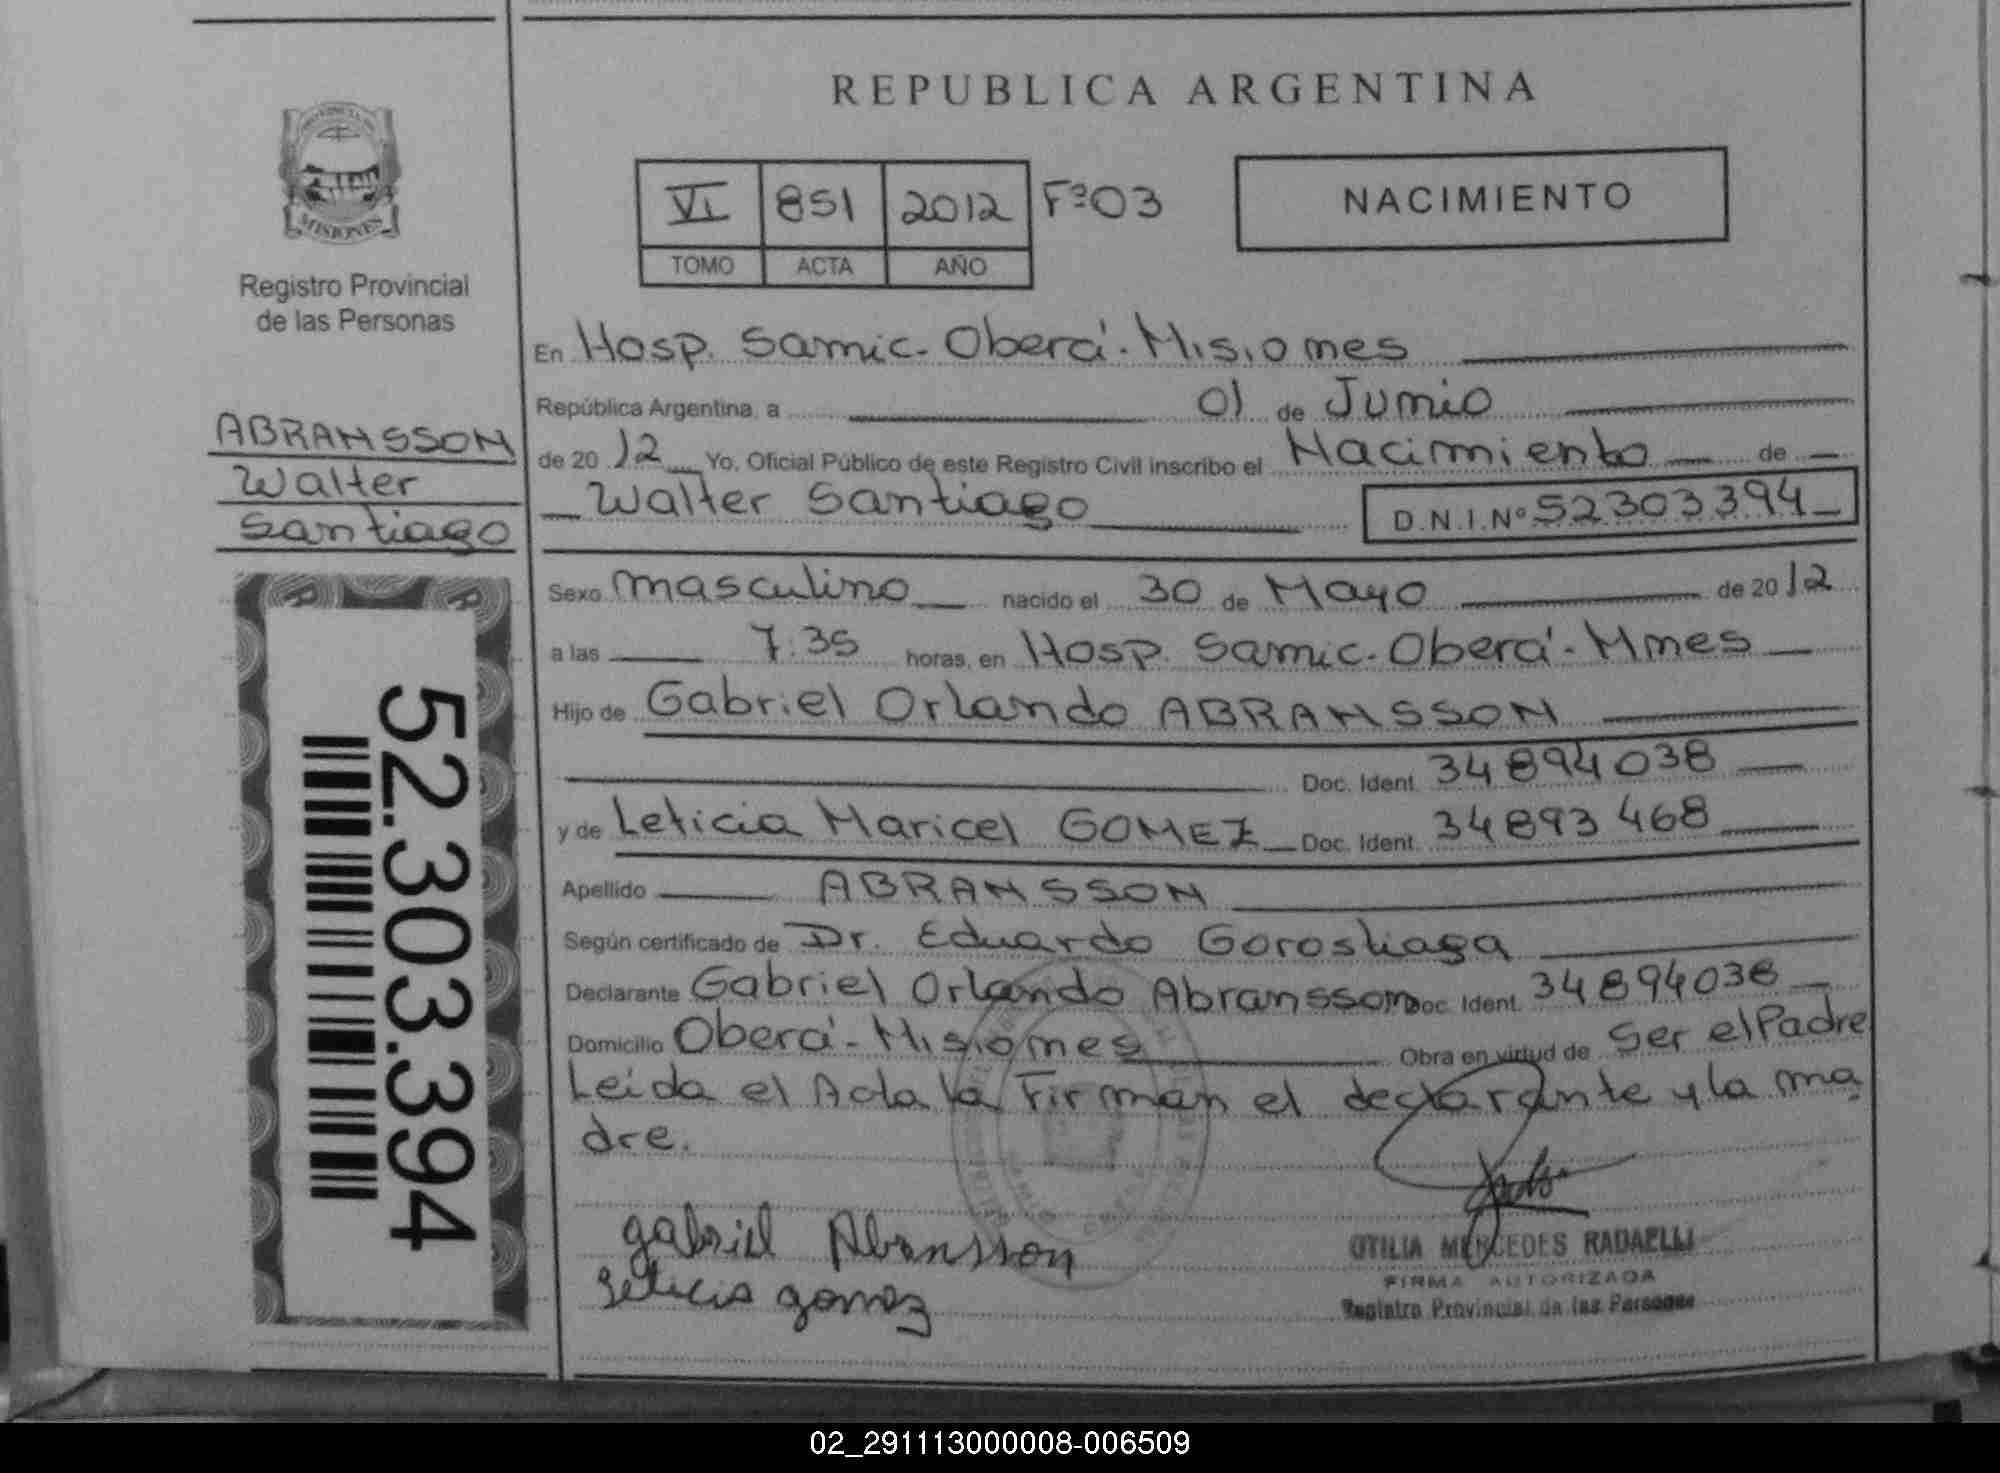 REPUBLICA ARGENTINA
VI 851 2012 Fº03
TOMO ACTA AÑO
NACIMIENTO
MISIONES
Registro Provincial
de las Personas
ABRAHSSON
Walter
Santiago
52.303.394
En Hosp. Samic. Oberá. Misiones
República Argentina, a 01 de Junio
de 20 12 Yo, Oficial Público de este Registro Civil inscribo el Nacimiento de
Walter Santiago D.N.I.Nº 52303394
Sexo masculino nacido el 30 de Mayo de 2012
a las 7:35 horas, en Hosp. Samic. Oberá. Mnes
Hijo de Gabriel Orlando ABRAHSSON
Doc. Ident. 34894038
y de Leticia Maricel GOMEZ Doc. Ident. 34893468
Apellido ABRAHSSON
Según certificado de Dr. Eduardo Gorostiaga
Declarante Gabriel Orlando Abransson Doc. Ident. 34894038
Domicilio Oberá - Misiones Obra en virtud de Ser el Padre
Leida el Acta la Firman el declarante y la ma
dre.
gabriel Abransson
Leticia gomez
OTILIA MERCEDES RADAELLI
FIRMA AUTORIZADA
Registro Provincial de las Personas
02_291113000008-006509